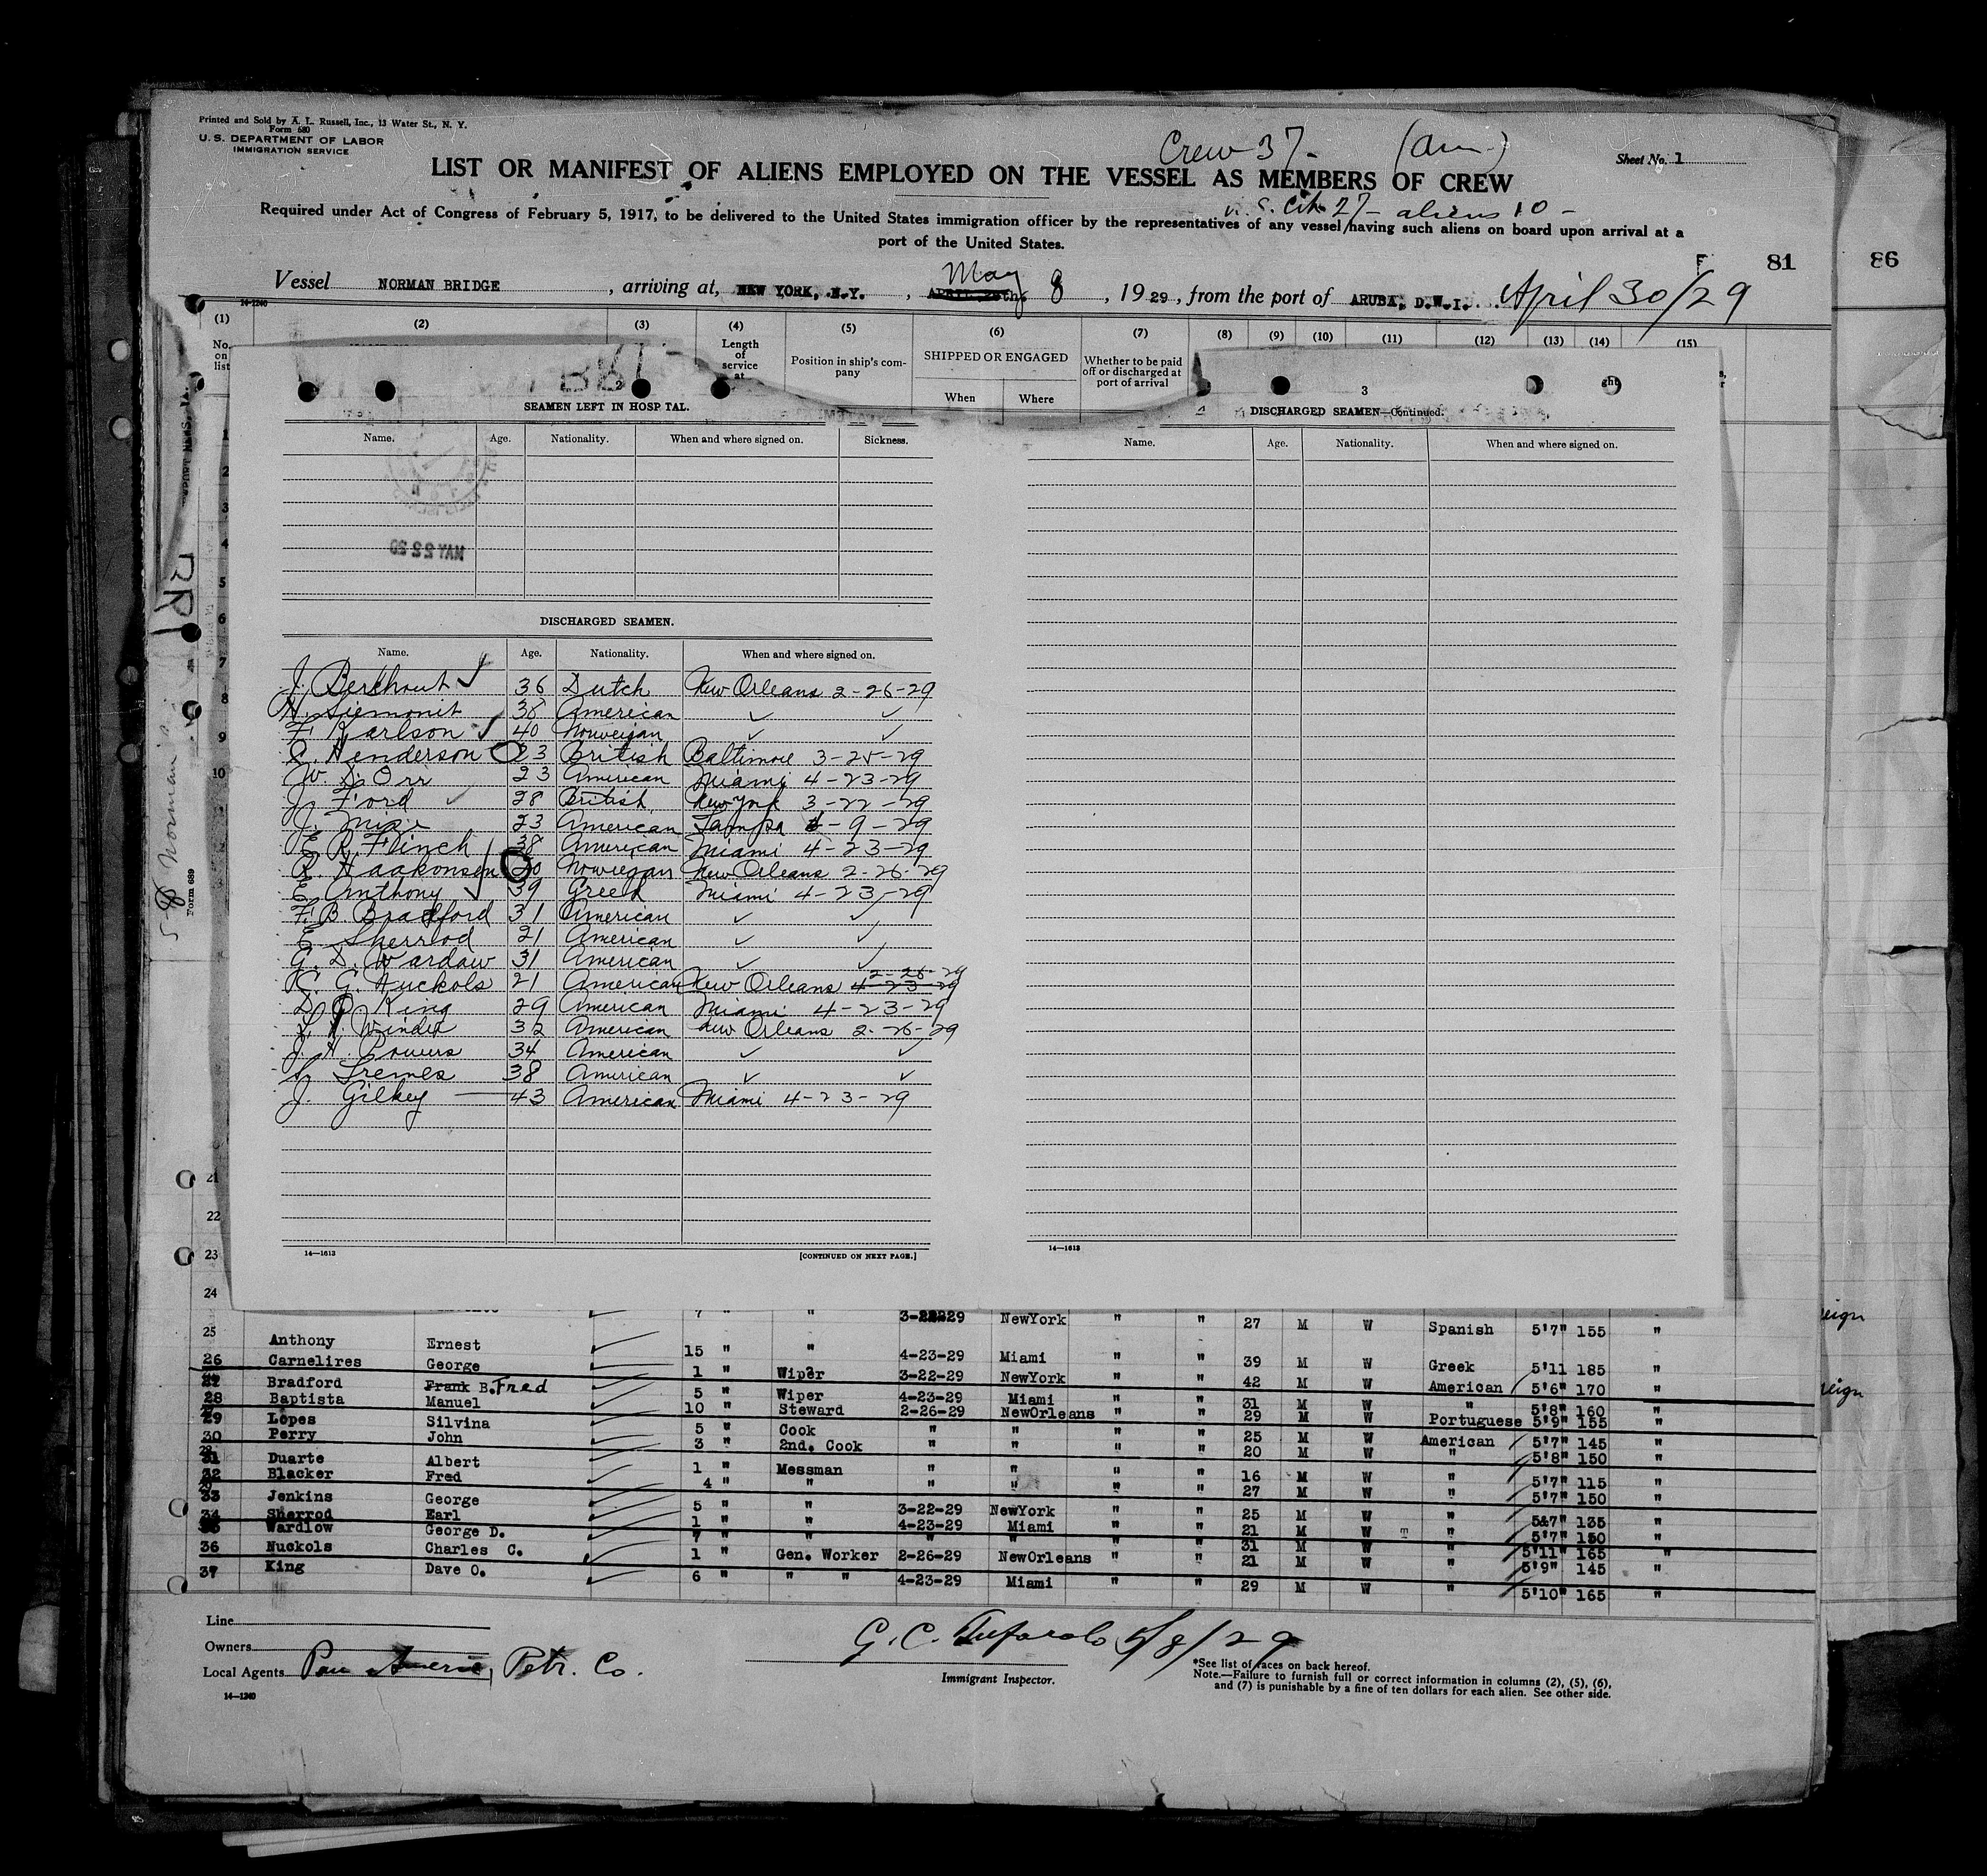 Printed and Sold by A. L. Russell, Inc., 13 Water St., N. Y.
Form 680
U. S. DEPARTMENT OF LABOR
IMMIGRATION SERVICE
Crew 37- (Am)
Sheet No. 1
LIST OR MANIFEST OF ALIENS EMPLOYED ON THE VESSEL AS MEMBERS OF CREW
U. S. Cit 27- aliens 10-
Required under Act of Congress of February 5, 1917, to be delivered to the United States immigration officer by the representatives of any vessel having such aliens on board upon arrival at a
port of the United States.
F 81 86
Vessel NORMAN BRIDGE, arriving at, NEW YORK, N.Y., May 8, 1929, from the port of ARUBA, D.W.I. April 30/29
14-1240
(1) (2) (3) (4) (5) (6) (7) (8) (9) (10) (11) (12) (13) (14) (15)
No. on list
Length of service at
Position in ship's company
SHIPPED OR ENGAGED
When Where
Whether to be paid off or discharged at port of arrival
2
SEAMEN LEFT IN HOSPITAL.
Name. Age. Nationality. When and where signed on. Sickness.
3
DISCHARGED SEAMEN—Continued.
Name. Age. Nationality. When and where signed on.
MAY 22 29
DISCHARGED SEAMEN.
Name. Age. Nationality. When and where signed on.
J. Berthout ✓ 36 Dutch New Orleans 2-26-29
H. Siemonit 38 American ✓ ✓
F. Karlson ✓ 40 Norweigan ✓ ✓
C. Henderson 23 British Baltimore 3-25-29
W. S. Orr 23 American Miami 4-23-29
J. Ford ✓ 28 British New York 3-22-29
J. Mize 23 American Tampa 4-9-29
E. R. Flinch 38 American Miami 4-23-29
R. Haakonsen ✓ 20 Nowiegan New Orleans 2-26-29
E. Anthony ✓ 39 Greek Miami 4-23-29
F. B. Bradford 31 American ✓ ✓
E. Sherrod 21 American ✓ ✓
G. D. Wardaw 31 American ✓ ✓
2-26-29
K. C. Nuckols 21 American New Orleans 4-23-29
D. O. King 29 American Miami 4-23-29
Winder 32 American New Orleans 2-26-29
J. H. Powers 34 American ✓ ✓
Tremes 38 American ✓ ✓
J. Gilkey 43 American Miami 4-23-29
14—1613
[CONTINUED ON NEXT PAGE.]
14—1613
Form 689
21
22
23
24
7 " " 3-22-29 NewYork " " 27 M W Spanish 5'7" 155 "
25 Anthony Ernest 15 " " 4-23-29 Miami " " 39 M W Greek 5'11 185 "
26 Carnelires George 1 " Wiper 3-22-29 NewYork " " 42 M W American 5'6" 170 "
Bradford Frank B. Fred 5 " Wiper 4-23-29 Miami " " 31 M W " 5'8" 160 "
28 Baptista Manuel 10 " Steward 2-26-29 NewOrleans " " 29 M W Portuguese 5'9" 155 "
29 Lopes Silvina 5 " Cook " " " " 25 M W American 5'7" 145 "
30 Perry John 3 " 2nd. Cook " " " " 20 M W " 5'8" 150 "
31 Duarte Albert 1 " Messman " " " " 16 M W " 5'7" 115 "
32 Blacker Fred 4 " " " " " " 27 M W " 5'7" 150 "
33 Jenkins George 5 " " 3-22-29 NewYork " " 25 M W " 5'7" 135 "
34 Sherrod Earl 1 " " 4-23-29 Miami " " 21 M W " 5'7" 150 "
35 Wardlow George D. 7 " " " " " " 31 M W " 5'11" 165 "
36 Nuckols Charles C. 1 " Gen. Worker 2-26-29 NewOrleans " " 21 M W " 5'9" 145 "
37 King Dave O. 6 " " " 4-23-29 Miami " " 29 M W " 5'10" 165 "
Line
Owners
Local Agents Pan Petr. Co.
G. C. 5/8/29
Immigrant Inspector.
*See list of races on back hereof.
Note.—Failure to furnish full or correct information in columns (2), (5), (6),
and (7) is punishable by a fine of ten dollars for each alien. See other side.
14—1240